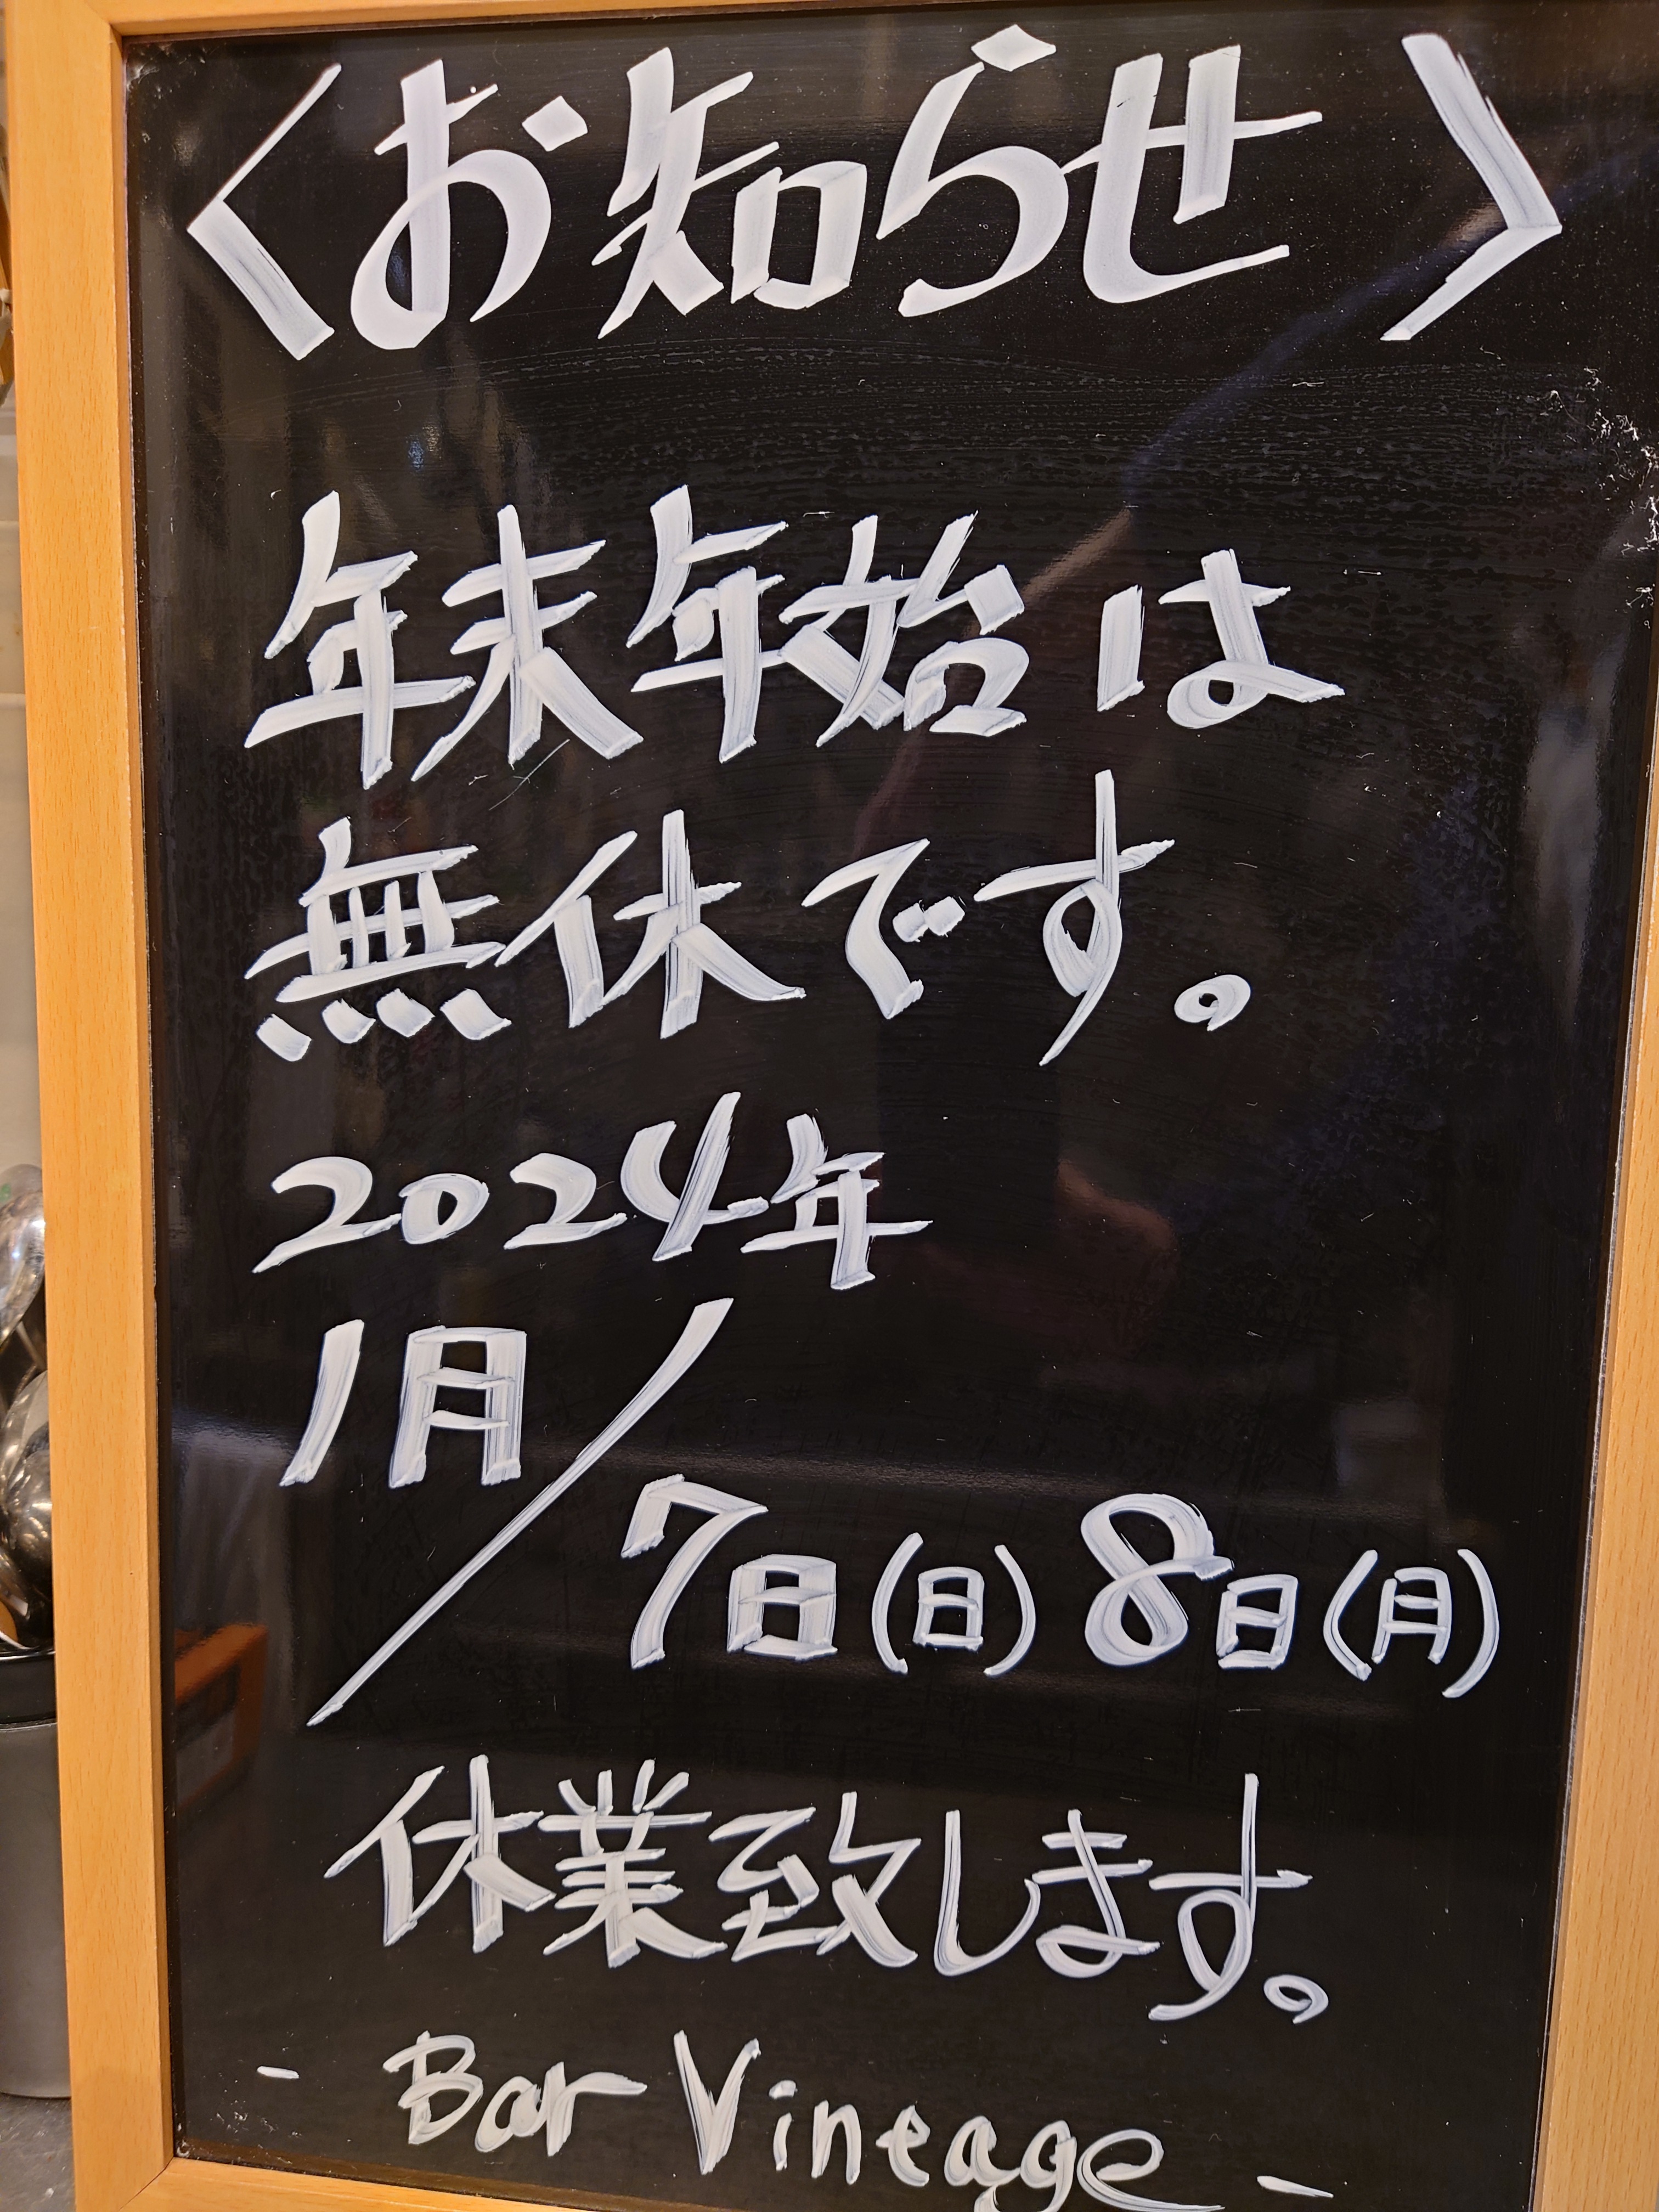 〈お知らせ〉
年末年始は
無休です。
2024年
1月/7日(日)8日(月)
休業致します。
- Bar Vineage -